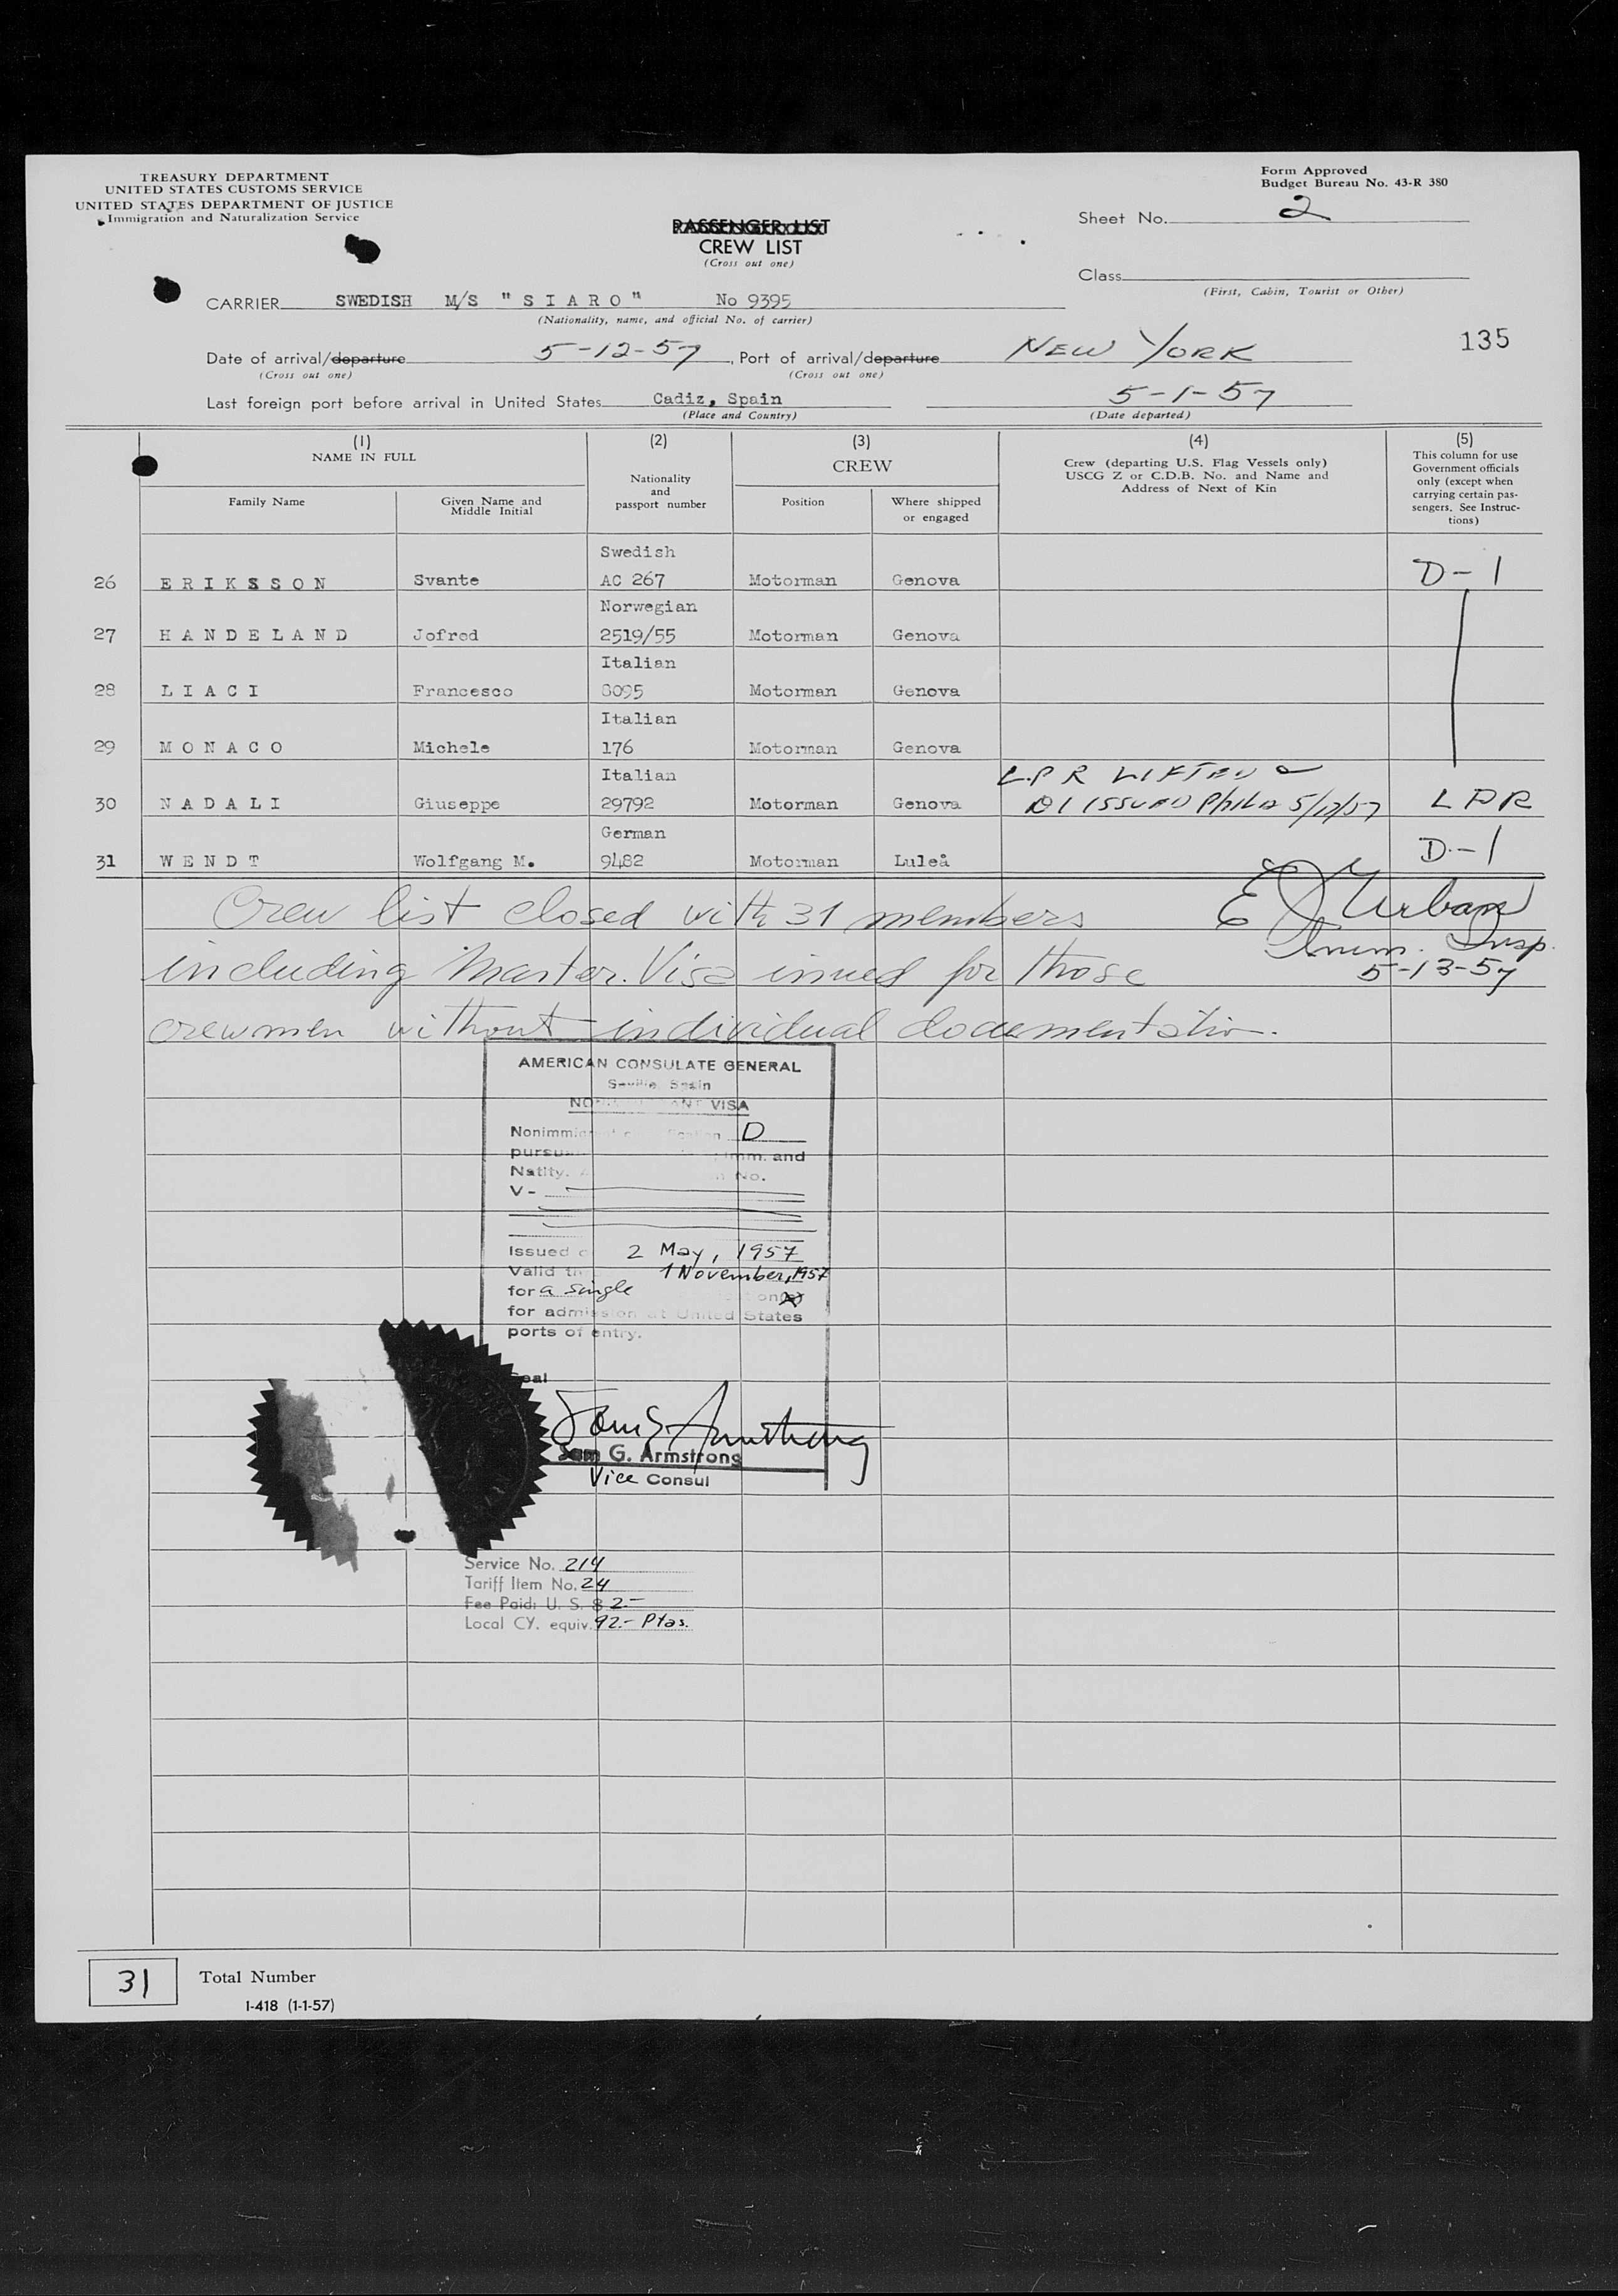 TREASURY DEPARTMENT
UNITED STATES CUSTOMS SERVICE
UNITED STATES DEPARTMENT OF JUSTICE
Immigration and Naturalization Service
Form Approved
Budget Bureau No. 43-R 380
Sheet No. 2
PASSENGER LIST
CREW LIST
(Cross out one)
Class
(First, Cabin, Tourist or Other)
CARRIER SWEDISH M/S "SIARO" No 9395
(Nationality, name, and official No. of carrier)
135
Date of arrival/departure 5-12-57, Port of arrival/departure NEW YORK
(Cross out one) (Cross out one)
Last foreign port before arrival in United States Cadiz, Spain 5-1-57
(Place and Country) (Date departed)
(1) (2) (3) (4) (5)
NAME IN FULL
Family Name
Given Name and Middle Initial
Nationality and passport number
CREW
Position
Where shipped or engaged
Crew (departing U.S. Flag Vessels only)
USCG Z or C.D.B. No. and Name and
Address of Next of Kin
This column for use
Government officials
only (except when
carrying certain pas-
sengers. See Instruc-
tions)
Swedish
26 ERIKSSON Svante AC 267 Motorman Genova D-1
Norwegian
27 HANDELAND Jofred 2519/55 Motorman Genova
Italian
28 LIACI Francesco 8095 Motorman Genova
Italian
29 MONACO Michele 176 Motorman Genova
Italian L.P R LIFTED &
30 NADALI Giuseppe 29792 Motorman Genova D1 ISSUED Phila 5/17/57 LPR
German
31 WENDT Wolfgang M. 9482 Motorman Luleå D-1
Crew list closed with 31 members
including Master. Visa issued for those
crewmen without individual documentation.
E J Urban
Imm. Insp.
5-13-57
AMERICAN CONSULATE GENERAL
Seville, Spain
VISA
D
Imm. and
No.
V-
Issued 2 May, 1957
Valid 1 November, 1957
for a single
for admission at United States
ports of entry.
Seal
Sam G. Armstrong
Sam G. Armstrong
Vice Consul
Service No. 214
Tariff Item No. 24
Fee Paid: U. S. $ 2.-
Local CY. equiv. 92.- Ptas.
31 Total Number
I-418 (1-1-57)